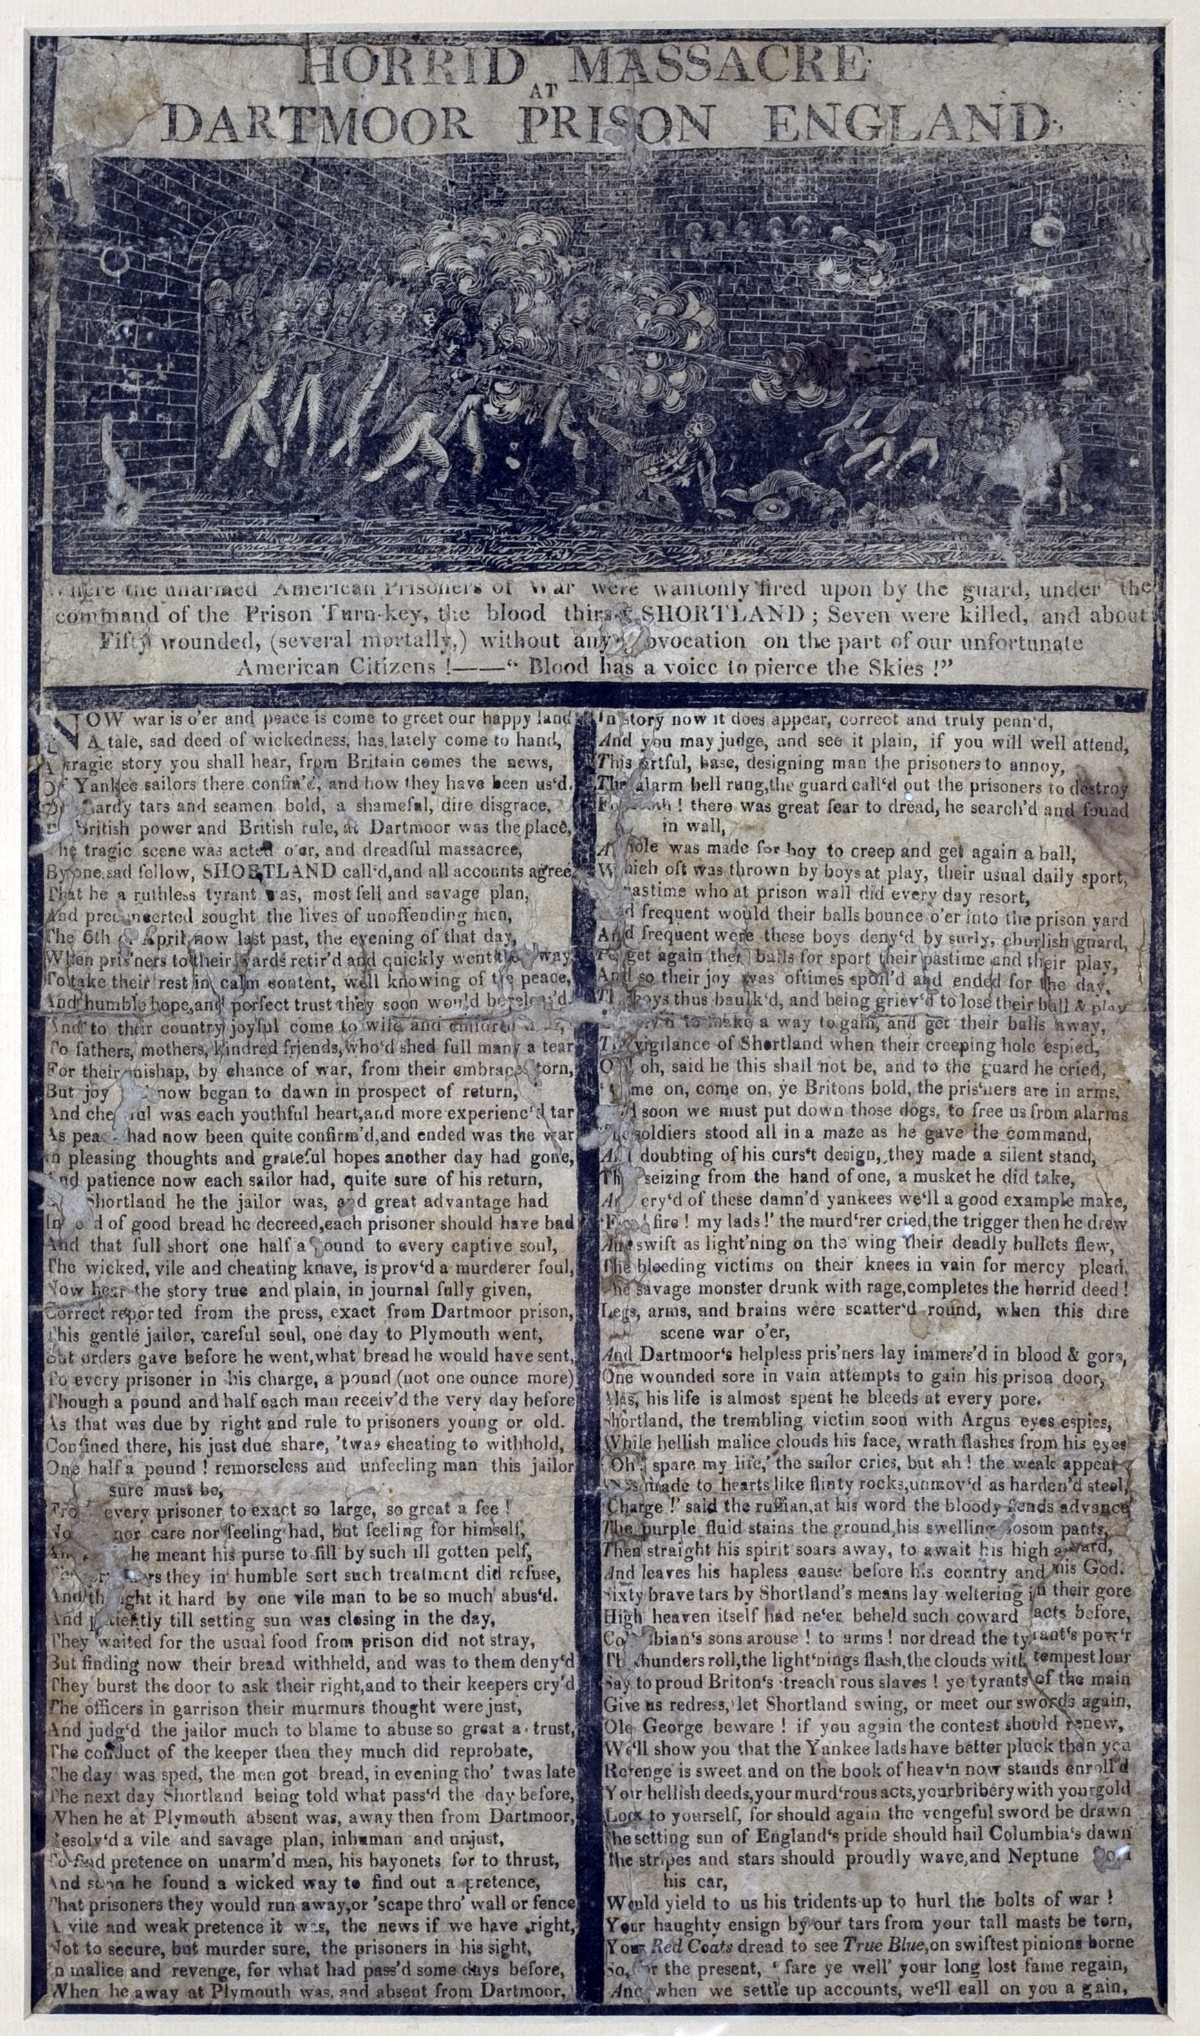 HORRID MASSACRE
AT
DARTMOOR PRISON ENGLAND,
Where the unarmed American Prisoners of War were wantonly fired upon by the guard, under the
command of the Prison Turn-key, the blood SHORTLAND; Seven were killed, and about
Fifty wounded, (several mortally,) without any on the part of our unfortunate
American Citizens !——“ Blood has a voice to pierce the Skies !”
NOW war is o'er and peace is come to greet our happy land
A tale, sad deed of wickedness, has lately come to hand,
A tragic story you shall hear, from Britain comes the news,
Of Yankee sailors there confin'd, and how they have been us'd.
hardy tars and seamen bold, a shameful, dire disgrace,
British power and British rule, at Dartmoor was the place,
The tragic scene was acted o'er, and dreadful massacree,
By one sad fellow, SHORTLAND call'd,and all accounts agree
That he a ruthless tyrant was, most fell and savage plan,
And preconcerted sought the lives of unoffending men,
The 6th of April now last past, the evening of that day,
When pris'ners to their yards retir'd and quickly went the way
To take their rest in calm content, well knowing of the peace,
And humble hope,and perfect trust they soon would be releas'd.
And to their country joyful come to wife and
To fathers, mothers, kindred friends,who'd shed full many a tear
For their mishap, by chance of war, from their embraces torn,
But joy now began to dawn in prospect of return,
And was each youthful heart,and more experienc'd tar
As peace had now been quite confirm'd,and ended was the war
In pleasing thoughts and grateful hopes another day had gone,
And patience now each sailor had, quite sure of his return,
Shortland he the jailor was, and great advantage had
of good bread he decreed,each prisoner should have bad
And that full short one half a pound to every captive soul,
The wicked, vile and cheating knave, is prov'd a murderer foul,
Now hear the story true and plain, in journal fully given,
Correct reported from the press, exact from Dartmoor prison,
This gentle jailor, careful soul, one day to Plymouth went,
But orders gave before he went,what bread he would have sent,
To every prisoner in his charge, a pound (not one ounce more)
Though a pound and half each man receiv'd the very day before
As that was due by right and rule to prisoners young or old.
Confined there, his just due share, 'twas cheating to withhold,
One half a pound ! remorseless and unfeeling man this jailor
sure must be,
From every prisoner to exact so large, so great a fee !
nor care nor feeling had, but feeling for himself,
he meant his purse to fill by such ill gotten pelf,
they in humble sort such treatment did refuse,
And thought it hard by one vile man to be so much abus'd.
And patiently till setting sun was closing in the day,
They waited for the usual food from prison did not stray,
But finding now their bread withheld, and was to them deny'd
They burst the door to ask their right,and to their keepers cry'd
The officers in garrison their murmurs thought were just,
And judg'd the jailor much to blame to abuse so great a trust,
The conduct of the keeper then they much did reprobate,
The day was sped, the men got bread, in evening tho' twas late
The next day Shortland being told what pass'd the day before,
When he at Plymouth absent was, away then from Dartmoor,
Resolv'd a vile and savage plan, inhuman and unjust,
To find pretence on unarm'd men, his bayonets for to thrust,
And soon he found a wicked way to find out a pretence,
That prisoners they would run away,or 'scape thro' wall or fence
A vile and weak pretence it was, the news if we have right,
Not to secure, but murder sure, the prisoners in his sight,
In malice and revenge, for what had pass'd some days before,
When he away at Plymouth was, and absent from Dartmoor,
In story now it does appear, correct and truly penn'd,
And you may judge, and see it plain, if you will well attend,
This artful, base, designing man the prisoners to annoy,
The alarm bell rung,the guard call'd out the prisoners to destroy
! there was great fear to dread, he search'd and found
in wall,
A hole was made for boy to creep and get again a ball,
Which oft was thrown by boys at play, their usual daily sport,
pastime who at prison wall did every day resort,
And frequent would their balls bounce o'er into the prison yard
And frequent were these boys deny'd by surly, churlish guard,
To get again their balls for sport their pastime and their play,
And so their joy was oftimes spoil'd and ended for the day,
boys thus baulk'd, and being griev'd to lose their ball & play
to make a way to gain, and get their balls away,
The vigilance of Shortland when their creeping hole espied,
oh, said he this shall not be, and to the guard he cried,
come on, come on, ye Britons bold, the pris'ners are in arms,
soon we must put down those dogs, to free us from alarms
The soldiers stood all in a maze as he gave the command,
And doubting of his curs't design, they made a silent stand,
seizing from the hand of one, a musket he did take,
cry'd of these damn'd yankees we'll a good example make,
fire ! my lads !' the murd'rer cried,the trigger then he drew
And swift as light'ning on the wing their deadly bullets flew,
The bleeding victims on their knees in vain for mercy plead,
The savage monster drunk with rage,completes the horrid deed !
Legs, arms, and brains were scatter'd round, when this dire
scene war o'er,
And Dartmoor's helpless pris'ners lay immers'd in blood & gore,
One wounded sore in vain attempts to gain his prison door,
Alas, his life is almost spent he bleeds at every pore.
Shortland, the trembling victim soon with Argus eyes espies,
While hellish malice clouds his face, wrath flashes from his eyes
'Oh! spare my life,' the sailor cries, but ah ! the weak appeal
Was made to hearts like flinty rocks,unmov'd as harden'd steel,
'Charge !' said the ruffian,at his word the bloody fiends advance
The purple fluid stains the ground,his swelling bosom pants,
Then straight his spirit soars away, to await his high award,
And leaves his hapless cause before his country and his God.
Sixty brave tars by Shortland's means lay weltering in their gore
High heaven itself had ne'er beheld such coward acts before,
Columbian's sons arouse ! to arms ! nor dread the tyrant's pow'r
The thunders roll,the light'nings flash,the clouds with tempest lour
Say to proud Briton's treach'rous slaves ! ye tyrants of the main
Give us redress, let Shortland swing, or meet our swords again,
Old George beware ! if you again the contest should renew,
We'll show you that the Yankee lads have better pluck than you
Revenge is sweet and on the book of heav'n now stands enroll'd
Your hellish deeds,your murd'rous acts,your bribery with your gold
Look to yourself, for should again the vengeful sword be drawn
The setting sun of England's pride should hail Columbia's dawn
The stripes and stars should proudly wave,and Neptune from
his car,
Would yield to us his tridents up to hurl the bolts of war !
Your haughty ensign by our tars from your tall masts be torn,
Your Red Coats dread to see True Blue,on swiftest pinions borne
So, for the present, ' fare ye well' your long lost fame regain,
And when we settle up accounts, we'll call on you again,